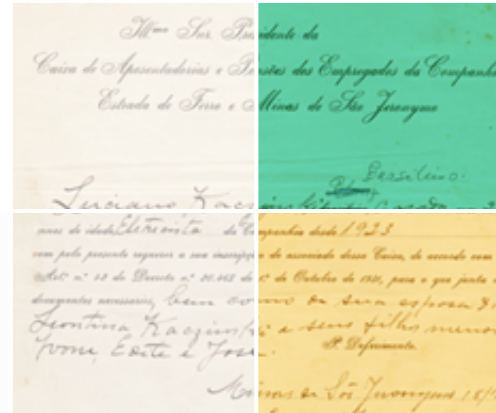 Illmo Snr. Presidente da
Caixa de Aposentadorias e Pensões dos Empregados da Companhia
Estrada de Ferro e Minas de São Jeronymo
Brasileiro.
Luciano Kaczinski casado
annos de idade, Eletricista da Companhia desde 1923
vem pelo presente requerer a sua inscripção de associado dessa Caixa, de accordo com
o Art. nº 43 do Decreto nº 20.465 de 1º de Outubro de 1931, para o que junta
documentos necessarios, bem como da sua esposa D.
Leontina Kaczinski e seus filhos menores
Yvone, Edite e José.
P. Deferimento.
Minas de São Jeronymo 18/